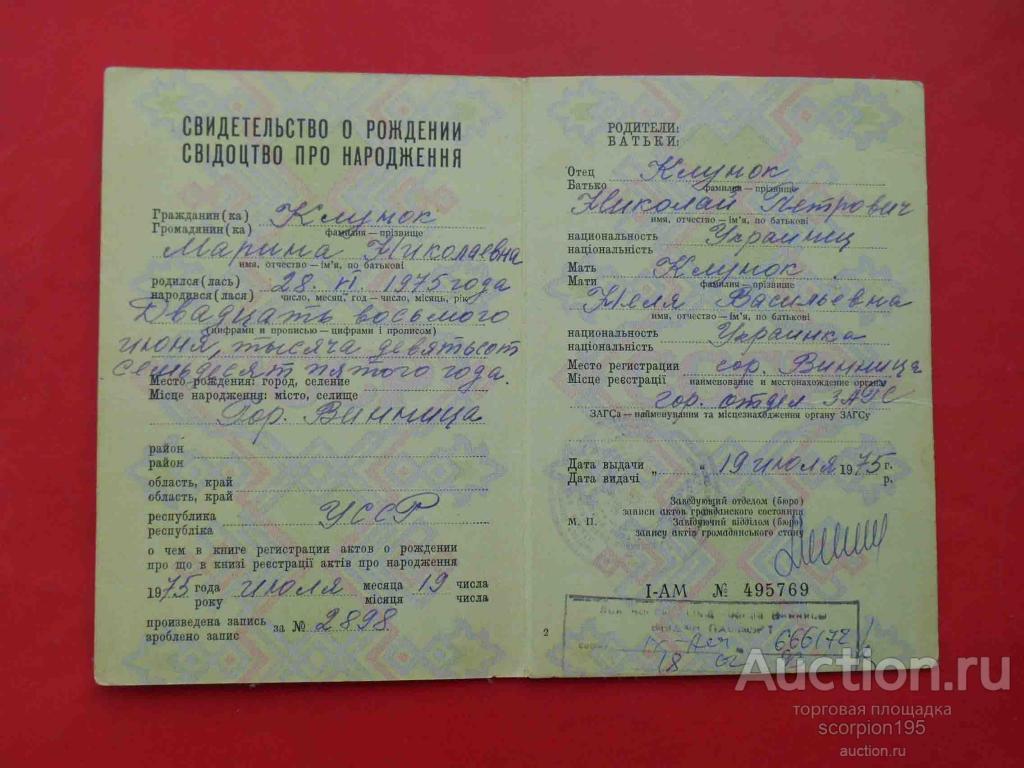 СВИДЕТЕЛЬСТВО О РОЖДЕНИИ
СВІДОЦТВО ПРО НАРОДЖЕННЯ
Гражданин(ка) Клунок
Громадянин(ка) фамилия — прізвище
Марина Николаевна
имя, отчество — ім'я, по батькові
родился(лась) 28. VI 1975 года
народився(лася) число, месяц, год — число, місяць, рік
Двадцать восьмого
(цифрами и прописью — цифрами і прописом)
июня, тысяча девятьсот
семьдесят пятого года.
Место рождения: город, селение
Місце народження: місто, селище
Гор. Винница
район
район
область, край
область, край
республика УССР
республіка
о чем в книге регистрации актов о рождении
про що в книзі реєстрації актів про народження
1975 года июля месяца 19 числа
року місяця числа
произведена запись за № 2898
зроблено запис
РОДИТЕЛИ:
БАТЬКИ:
Отец Клунок
Батько фамилия — прізвище
Николай Петрович
имя, отчество — ім'я, по батькові
национальность Украинец
національність
Мать Клунок
Мати фамилия — прізвище
Неля Васильевна
имя, отчество — ім'я, по батькові
национальность Украинка
національність
Место регистрации гор. Винница
Місце реєстрації наименование и местонахождение органа
гор. отдел ЗАГС
ЗАГСа — найменування та місцезнаходження органу ЗАГСу
Дата выдачи „ “ 19 июля 1975 г.
Дата видачі р.
Заведующий отделом (бюро)
записи актов гражданского состояния
М. П. Завідуючий відділом (бюро)
запису актів громадянського стану
I-АМ № 495769
ВЫДАН ПАСПОРТ
666172
18
2
Auction.ru
торговая площадка
scorpion195
auction.ru